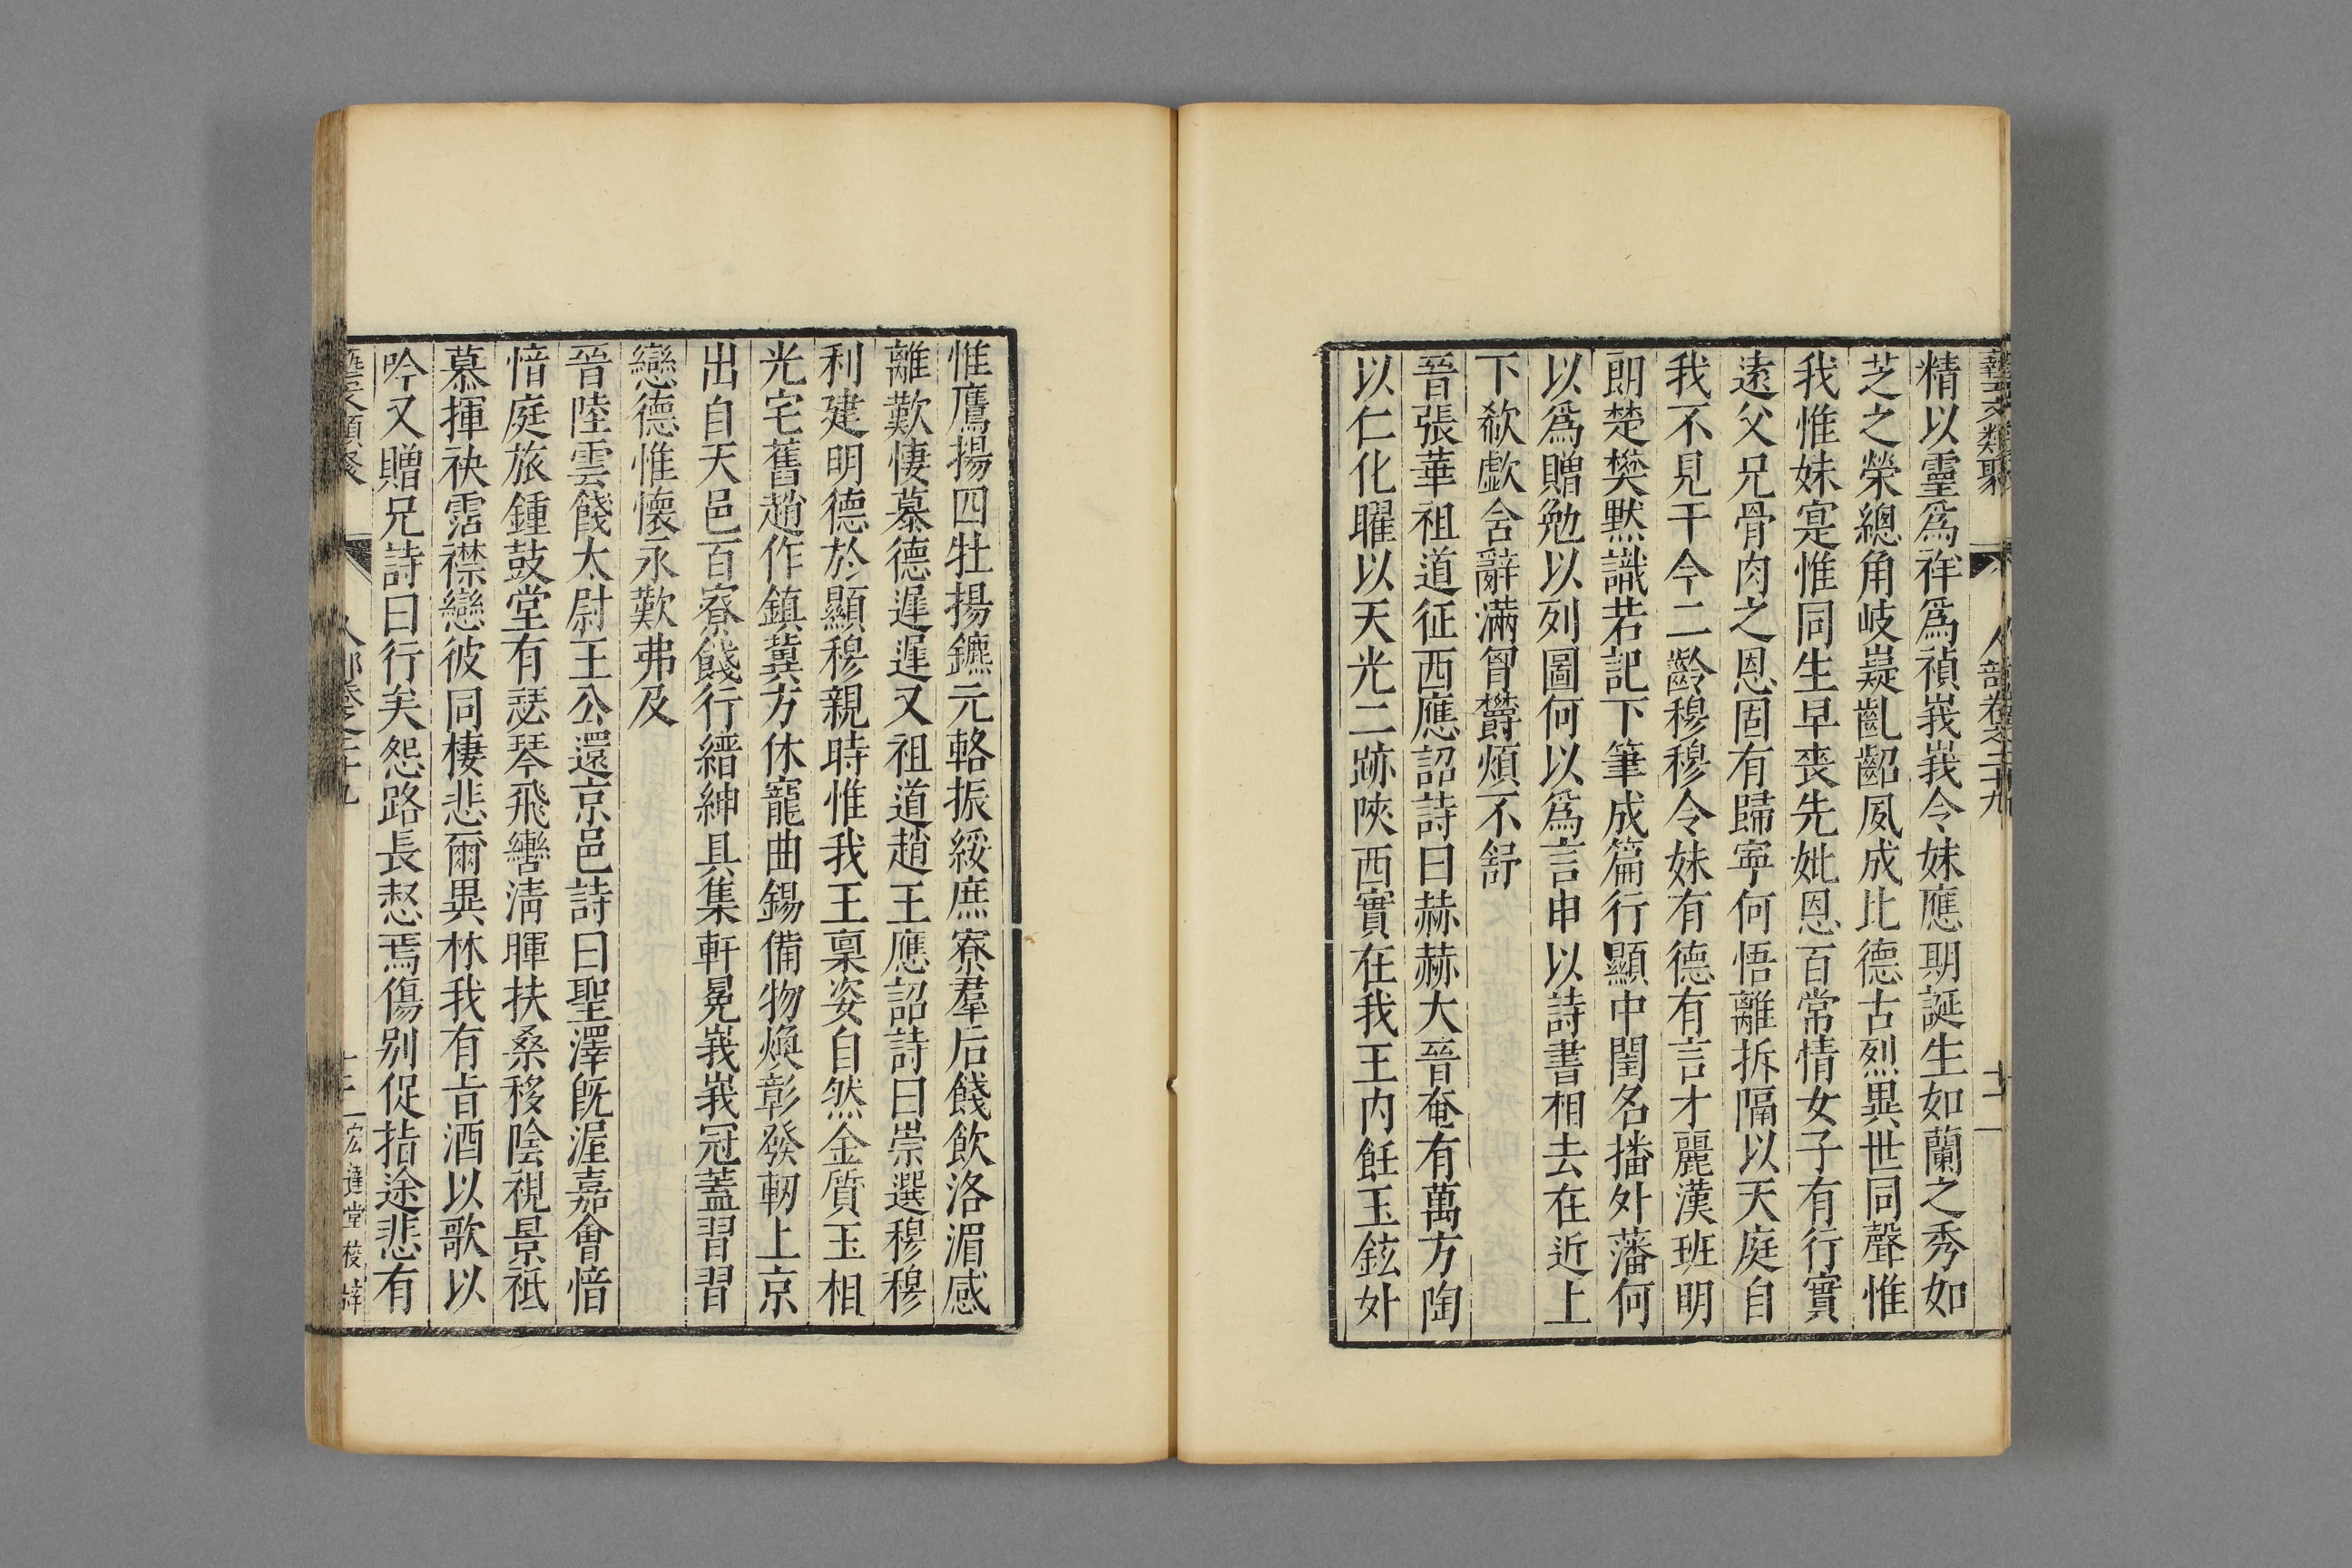 藝文類聚 人部卷之二十九 十二
精以靈爲祥爲禎峩峩令妹應期誕生如蘭之秀如
芝之榮總角岐嶷齓齠夙成比德古烈異世同聲惟
我惟妹寔惟同生早丧先妣恩百常情女子有行實
遠父兄骨肉之恩固有歸寧何悟離拆隔以天庭自
我不見于今二齡穆穆令妹有德有言才麗漢班明
朗楚樊默識若記下筆成篇行顯中閨名播外藩何
以爲贈勉以列圖何以爲言申以詩書相去在近上
下欷歔含辭滿胷欝煩不舒
晉張華祖道征西應詔詩曰赫赫大晉奄有萬方陶
以仁化曜以天光二跡陜西實在我王内飪玉鉉外
惟鷹揚四牡揚鑣元輅振綏庶寮羣后餞飲洛湄感
離歎悽慕德遲遲又祖道趙王應詔詩曰崇選穆穆
利建明德於顯穆親時惟我王稟姿自然金質玉相
光宅舊趙作鎮冀方休寵曲錫備物煥彰發軔上京
出自天邑百寮餞行縉紳具集軒冕峩峩冠蓋習習
戀德惟懷永歎弗及
晉陸雲餞太尉王公還京邑詩曰聖澤旣渥嘉會愔
愔庭旅鍾鼓堂有瑟琴飛轡清暉扶桑移陰視景祗
慕揮袂霑襟戀彼同棲悲爾異林我有㫖酒以歌以
吟又贈兄詩曰行矣怨路長惄焉傷别促指途悲有
藝文類聚 人部卷之二十九 十二 宏達堂校梓